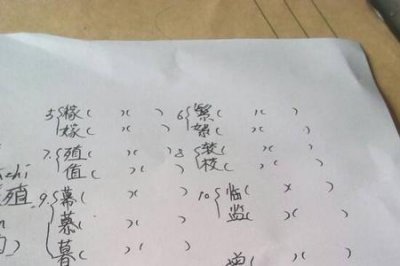 5.{稼(  )(  ) 6{繁(  )(  )
嫁(  )(  ) 絮(  )(  )
7.{殖(  )(  ) 8{装(  )(  )
chi 值(  )(  ) 枝(  )(  )
殖 9.{幕(  )(  ) 10{临(  )(  )
慕(  )(  ) 监(  )(  )
) 暮(  )(  )